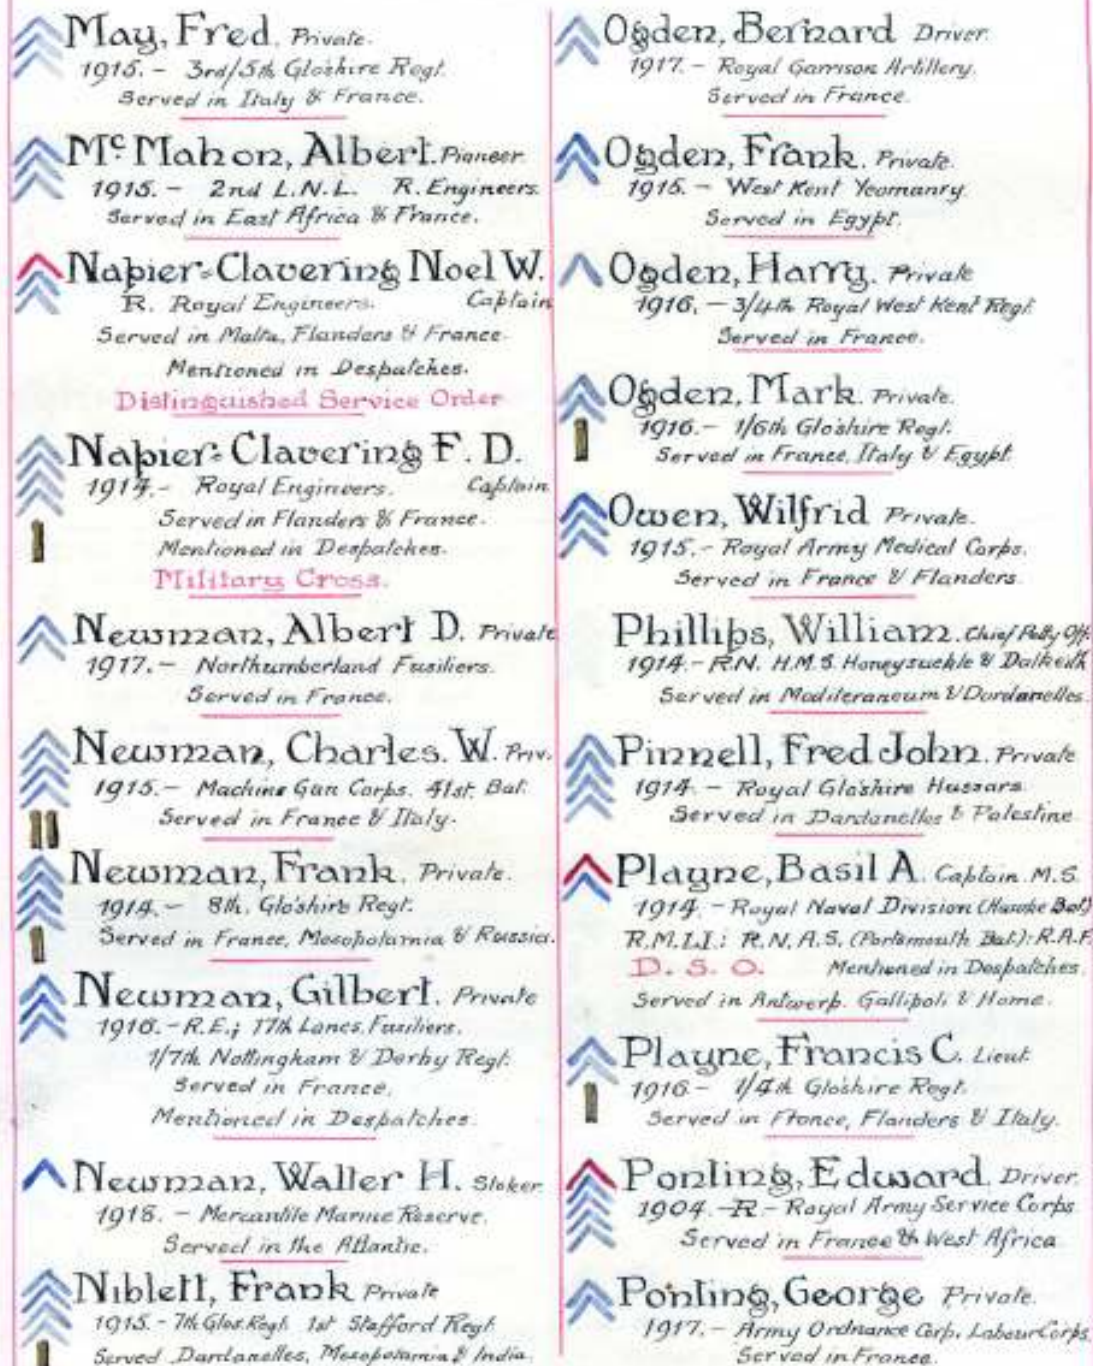 May, Fred. Private.
1915. - 3rd/5th Gloshire Regt.
Served in Italy & France.
Mc Mahon, Albert. Pioneer
1915. - 2nd L.N.L. R. Engineers.
Served in East Africa & France.
Napier-Clavering Noel W.
R. Royal Engineers. Captain
Served in Malta, Flanders & France.
Mentioned in Despatches.
Distinguished Service Order
Napier-Clavering F. D.
1914. - Royal Engineers. Captain
Served in Flanders & France.
Mentioned in Despatches.
Military Cross.
Newman, Albert D. Private
1917. - Northumberland Fusiliers.
Served in France.
Newman, Charles. W. Priv.
1915. - Machine Gun Corps. 41st. Bat.
Served in France & Italy.
Newman, Frank. Private.
1914. - 8th. Glo'shire Regt.
Served in France, Mesopotamia & Russia.
Newman, Gilbert. Private
1916. - R.E.; 17th Lancs. Fusiliers.
1/7th Nottingham & Derby Regt.
Served in France.
Mentioned in Despatches.
Newman, Walter H. Stoker.
1918. - Mercantile Marine Reserve.
Served in the Atlantic.
Niblett, Frank Private
1915. - 7th Glos. Regt. 1st Stafford Regt.
Served Dardanelles, Mesopotamia & India.
Ogden, Bernard Driver.
1917. - Royal Garrison Artillery.
Served in France.
Ogden, Frank. Private.
1915. - West Kent Yeomanry.
Served in Egypt.
Ogden, Harry. Private
1916. - 3/4th Royal West Kent Regt.
Served in France.
Ogden, Mark. Private.
1916. - 1/6th Glo'shire Regt.
Served in France, Italy & Egypt.
Owen, Wilfrid Private.
1915. - Royal Army Medical Corps.
Served in France & Flanders.
Phillips, William. Chief Petty Off.
1914. - R.N. H.M.S. Honeysuckle & Dalkeith
Served in Mediteraneum & Dardanelles.
Pinnell, Fred John. Private
1914. - Royal Glo'shire Hussars.
Served in Dardanelles & Palestine
Playne, Basil A. Captain. M.S.
1914. - Royal Naval Division (Hawke Bat)
R.M.L.I.: R.N.A.S. (Portsmouth Bat.): R.A.F.
D. S. O. Mentioned in Despatches.
Served in Antwerp. Gallipoli & Home.
Playne, Francis C. Lieut.
1916 - 1/4th Glo'shire Regt.
Served in France, Flanders & Italy.
Ponting, Edward. Driver.
1904. - R - Royal Army Service Corps
Served in France & West Africa
Ponting, George Private.
1917. - Army Ordnance Corp. Labour Corps.
Served in France.